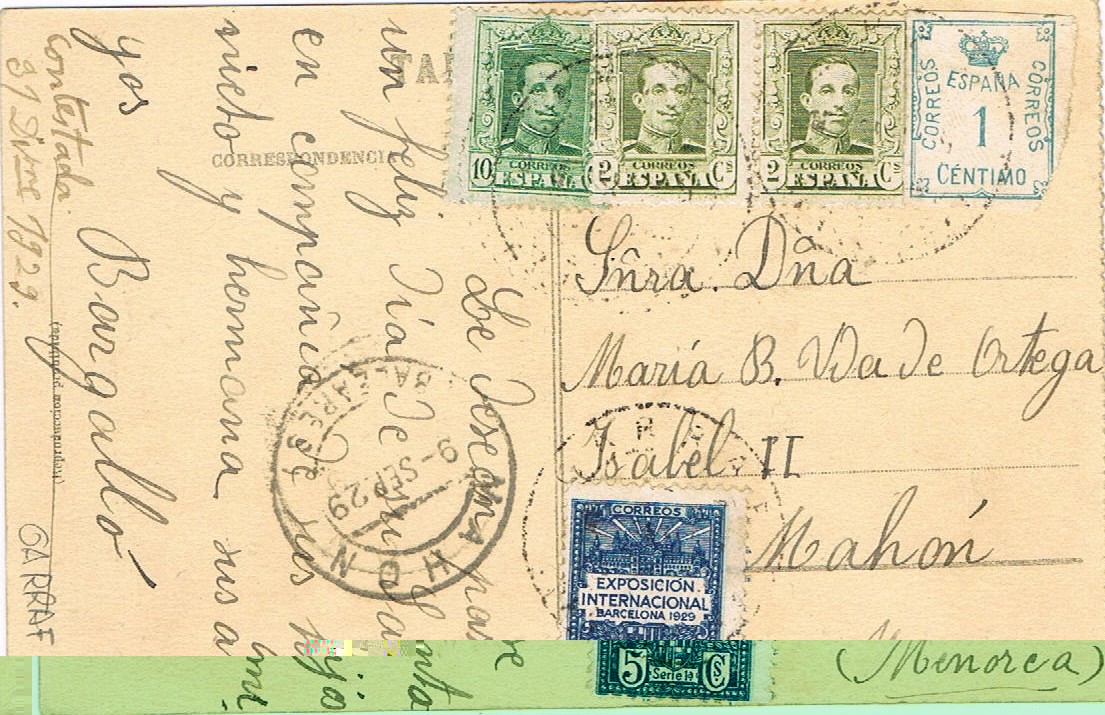 TAR
CORRESPONDENCIA
10 CORREOS ESPAÑA
2 CORREOS ESPAÑA Cs
2 CORREOS ESPAÑA Cs
CORREOS ESPAÑA CORREOS
1
CÉNTIMO
Sñra. Dña
María B. Vda de Ortega
Isabel II
Mahón
(Menorca)
CORREOS
EXPOSICIÓN
INTERNACIONAL
BARCELONA 1929
5 Serie 1a Cs
MAHON
BALEARES
9-SEP 29
Le desean pase
un feliz día de su Santa
en compañía de sus hijo
nieto y hermana sus ami
yos Bargalló
contestada.
31 Dicbre 1929.
(Reproducción
GARRAF